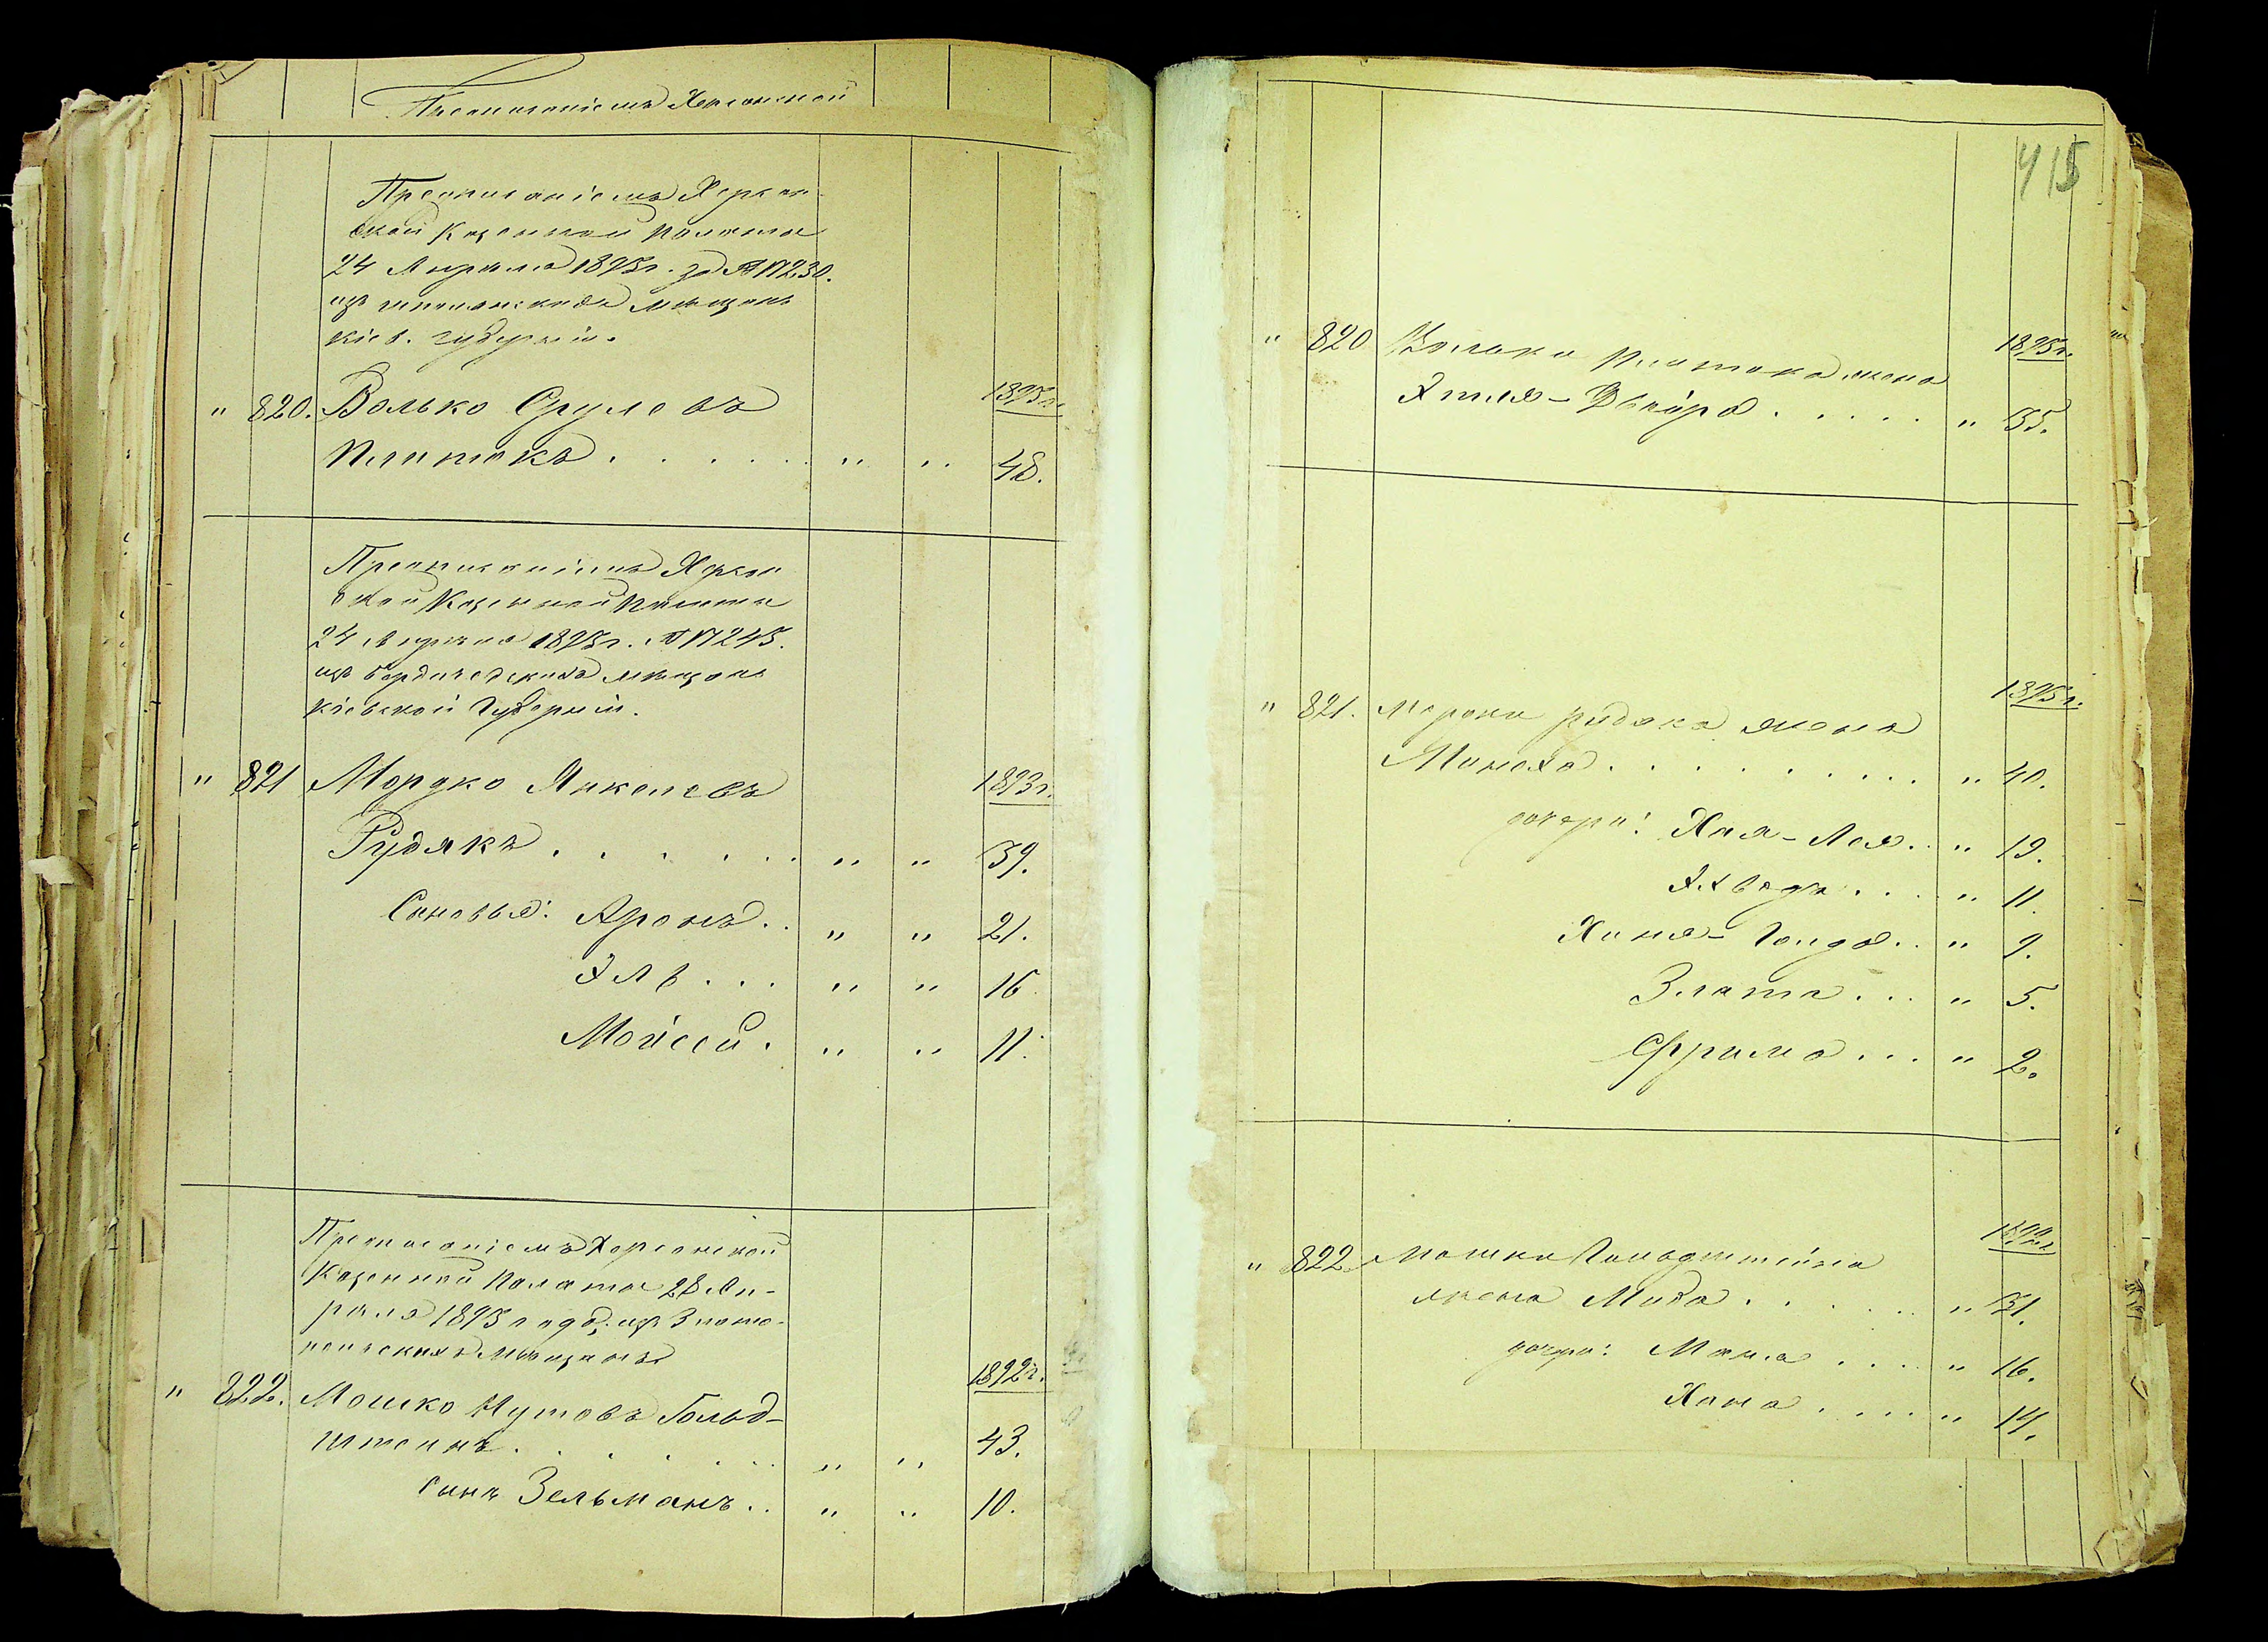 Предписаніемъ Херсонской
Предписаніемъ Херсон-
ской Казенной Палаты
24 Апрѣля 1895 г. за № 17230.
изъ шполянскихъ мѣщанъ
Кіев. губерніи.
" 820. Волько Срулевъ 1895 г.
Плитокъ . . . . . . " " 48.
Предписаніемъ Херсон
ской Казенной Палаты
24 Апрѣля 1895 г. № 17245.
изъ бердичевскихъ мѣщанъ
Кіевской Губерніи.
" 821 Мордко Янкелевъ 1893 г.
Рудякъ . . . . . . " " 39.
Сыновья: Аронъ . . " " 21.
Эль . . . " " 16.
Мойсей . " " 11.
Предписаніемъ Херсонской
Казенной Палаты 28 Ап-
рѣля 1895 года, изъ Злато-
польскихъ мѣщанъ
" 822. Мошко Нутовъ Гольд- 1892 г.
штейнъ . . . . . . " " 43.
сынъ Зельманъ . . " " 10.
415
" 820 Волька Плитока жена 1895 г.
Этля-Двойра . . . . . " 35.
" 821. Мордка Рудяка жена 1895 г.
Минеха . . . . . . . . . " 40.
дочери: Хая-Лея . . " 19.
Яхведъ . . . " 11.
Хиня-Голда . . " 9.
Злата . . . " 5.
Фрима . . . " 2.
" 822. Мошка Гольдштейна 1892 г.
жена Миха . . . . . . " 31.
дочери: Маня . . . . " 16.
Хана . . . . " 14.